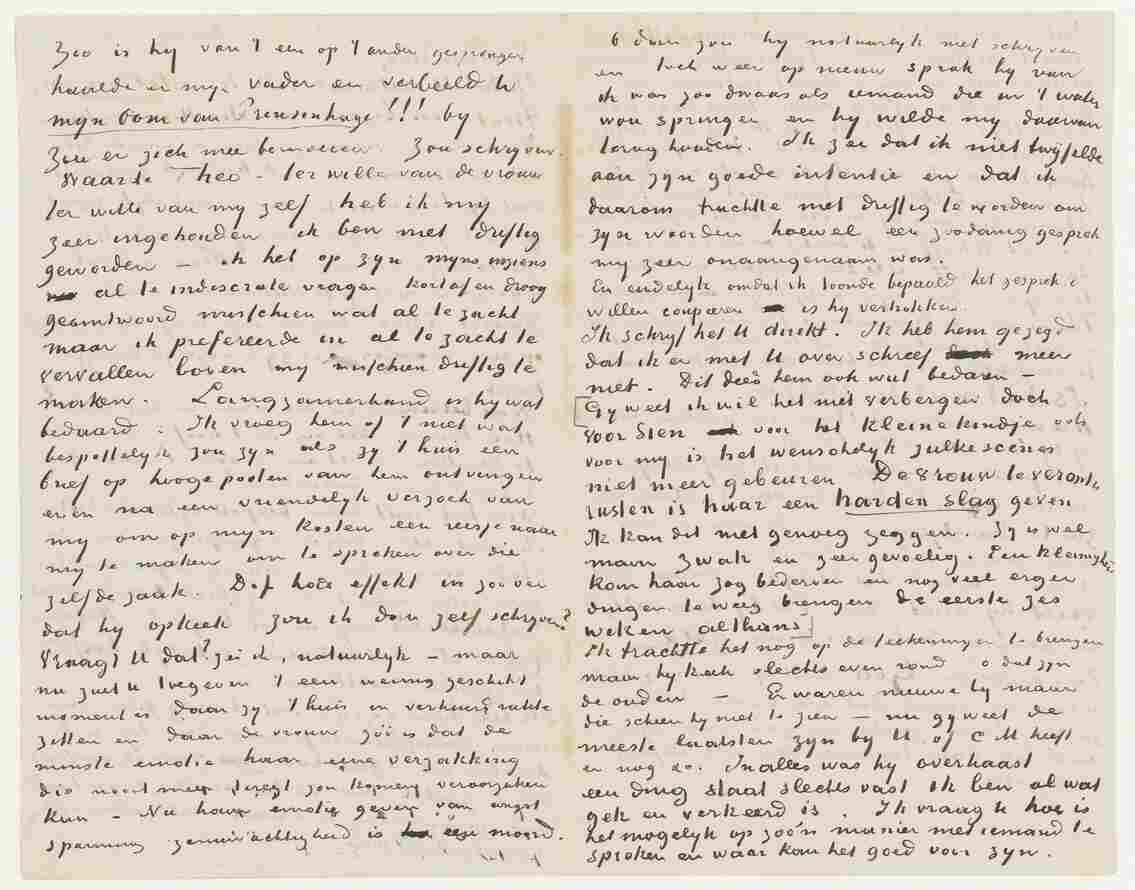 Zoo is hy van 't een op 't ander gesprongen
haalde er myn vader en verbeeld U
myn Oom van Prinsenhage!!! by
Zou er zich mee bemoeien. Zou schryven.
Waarde Theo – ter wille van de vrouw
ter wille van my zelf heb ik my
zeer ingehouden ik ben niet driftig
geworden – ik heb op zyn myns inziens
al te indiscrete vragen kortaf en droog
geantwoord misschien wat al te zacht
maar ik prefereerde in al te zacht te
vervallen boven my misschien driftig te
maken. Langzamerhand is hy wat
bedaard. Ik vroeg hem of 't niet wat
bespottelyk zou zyn als zy t'huis een
brief op hooge pooten van hem ontvingen
even na een vriendelyk verzoek van
my om op myn kosten een reisje naar
my te maken om te spreken over die
zelfde zaak. Dit had effekt in zoover
dat hy opkeek zou ik dan zelf schryven?
Vraagt U dat? zei ik, natuurlyk – maar
nu zult U toegeven 't een weinig geschikt
moment is daar zy t'huis in verhuisdrukte
zitten en daar de vrouw zóó is dat de
minste emotie haar eene verzakking
die nooit meer teregt zou komen veroorzaken
kan – Nu haar emotie geven van angst
spanning zenuwachtigheid is een moord.
O dan zou hy natuurlyk niet schryven
en toch weer op nieuw sprak hy van
ik was zoo dwaas als iemand die in 't water
wou springen en hy wilde my daarvan
terug houden. Ik zei dat ik niet twyfelde
aan zyn goede intentie en dat ik
daarom trachtte niet driftig te worden om
zyn woorden hoewel een zoodanig gesprek
my zeer onaangenaam was.
En eindelyk omdat ik toonde bepaald het gesprek te
willen couperen is hy vertrokken.
Ik schryf het U direkt. Ik heb hem gezegd
dat ik er met U over schreef meer
niet. Dit deed hem ook wat bedaren –
[Gy weet ik wil het niet verbergen doch
voor Sien voor het kleine kindje ook
voor my is het wenschelyk zulke scènes
niet meer gebeuren De vrouw te veront-
rusten is haar een harden slag geven
Ik kan dit niet genoeg zeggen. Zy is wel
maar zwak en zeer gevoelig. Een kleinigheid
kan haar zog bederven en nog veel erger
dingen te weeg brengen de eerste zes
weken althans]
Ik trachtte het nog op de teekeningen te brengen
maar hy keek slechts even rond o dat zyn
de ouden – Er waren nieuwe by maar
die scheen hy niet te zien – nu gy weet de
meeste laatsten zyn by U. of C M heeft
er nog zoo. In alles was hy overhaast
een ding staat slechts vast ik ben al wat
gek en verkeerd is. Ik vraag U hoe is
het mogelyk op zoo'n manier met iemand te
spreken en waar kan het goed voor zyn.